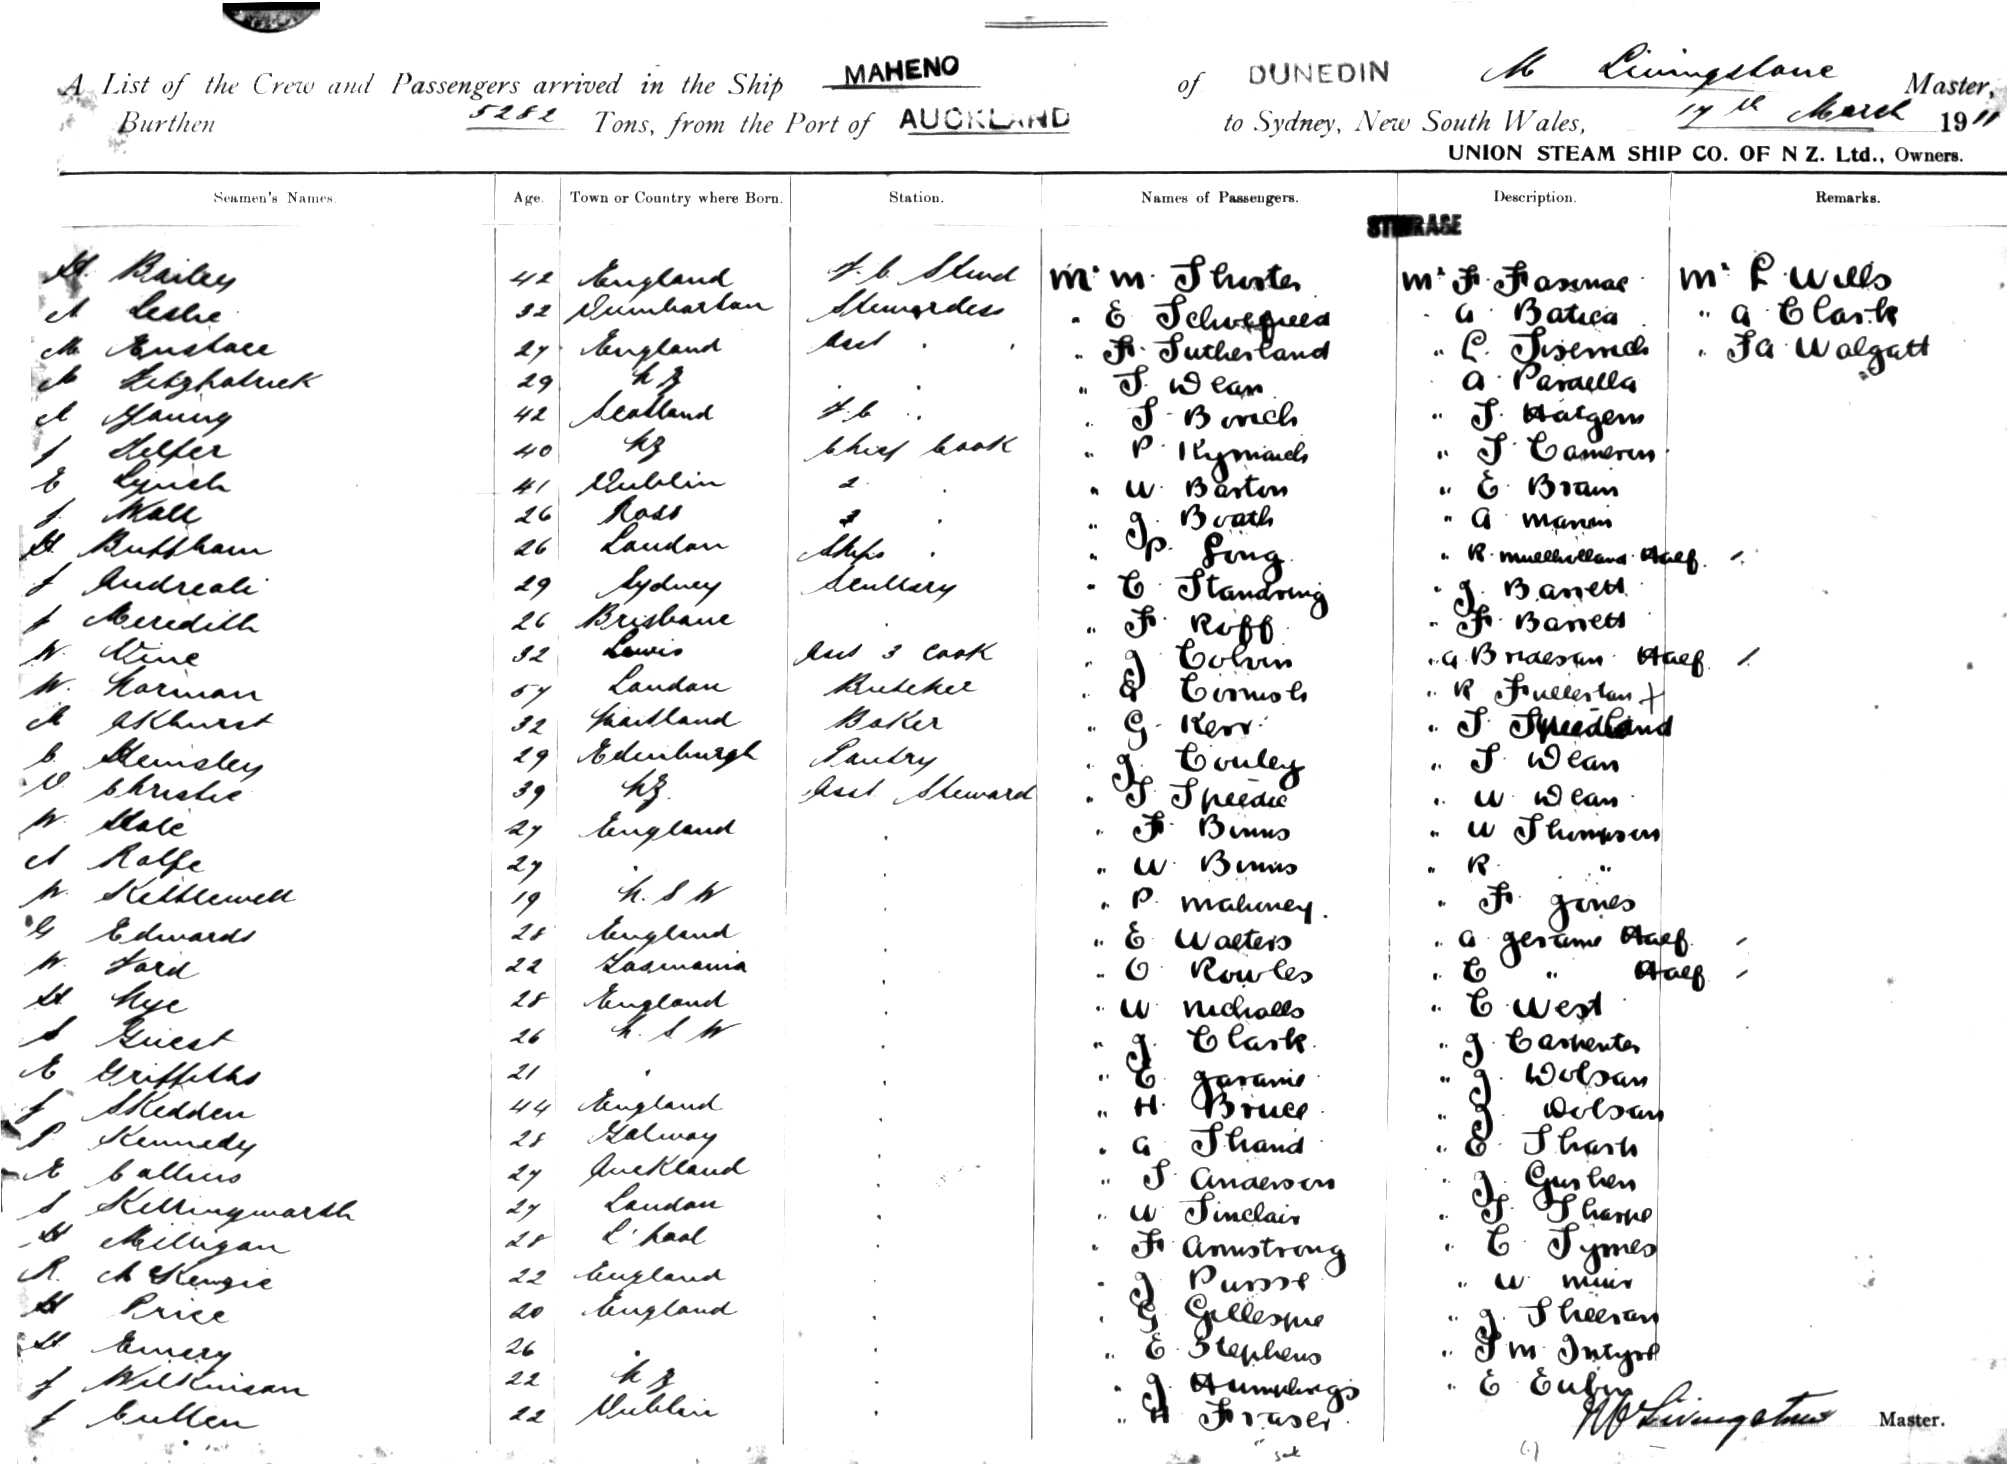 A List of the Crew and Passengers arrived in the Ship MAHENO of DUNEDIN M Livingstone Master,
Burthen 5282 Tons, from the Port of AUCKLAND to Sydney, New South Wales, 17th March 1911
UNION STEAM SHIP CO. OF N Z. Ltd., Owners.
Seamen's Names. Age. Town or Country where Born. Station. Names of Passengers. Description. Remarks.
STEERAGE
H. Bailey 42 England F.C. Stewd Mr M. Shuster Mr F. Mr L. Wills
A Leslie 32 Dumbarton Stewardess " E " A Batica " A Clark
M Eustace 27 England Asst " F. Sutherland " L. " Walgatt
A Fitzpatrick 29 N Z " S. Dean A Pardella
A Young 42 Scotland F.C. " S Borich " J.
J Telfer 40 NZ Chief Cook " P. " J Cameron
E Lynch 41 Dublin 2 " W. Barton " E Brain
J. Wall 26 Ross 3 " J. Boath " A Manin
H Buffham 26 London Ships " P. Long " R. Mullholland Half
J Andreoli 29 Sydney Scullery " C. Standring " J. Barrett
J Meredith 26 Brisbane " F. Roff " F. Barrett
W. Vine 32 Lewis Asst 3 Cook " J Colvin " A. Half
W. Norman 57 London Butcher " Cornish " R Fullerton
A Akhurst 32 Maitland Baker " G. Kerr " S.
C. Hemsley 29 Edinburgh Pantry " J. Conley " S Dean
D Christie 39 NZ. Asst Steward " S Speedie " W Dean
W. Hale 27 England " F. Binns " W Thompson
A Rolfe 27 " " W. Binns " R "
W. Kettlewell 19 N. S W " P. Mahoney " F. Jones
G Edwards 28 England " E Walters " A Half
W. Ford 22 Tasmania " O Rowles " C " Half
H Nye 28 England " W Nicholls " C West
S Guest 26 N. S W " J. Clark " J. Carpenter
E Griffiths 21 " " E " J. Dolsan
J Skedden 44 England " H. Bruce " J. Dolsan
P Kennedy 28 Galway " A Shand " E Shark
E Collins 27 Auckland " S. Anderson " J.
S Killingworth 27 London " W Sinclair " S. Sharpe
H Milligan 28 L'pool " F Armstrong " C Symes
R. McKenzie 22 England " J " W Muir
H Price 20 England " G Gillespie " J. Sheeran
H Emery 26 " " E Stephens " J McIntyre
J Wilkinson 22 N Z " J. Humphrys " E
J Cullen 22 Dublin " H Fraser
M Livingstone Master.